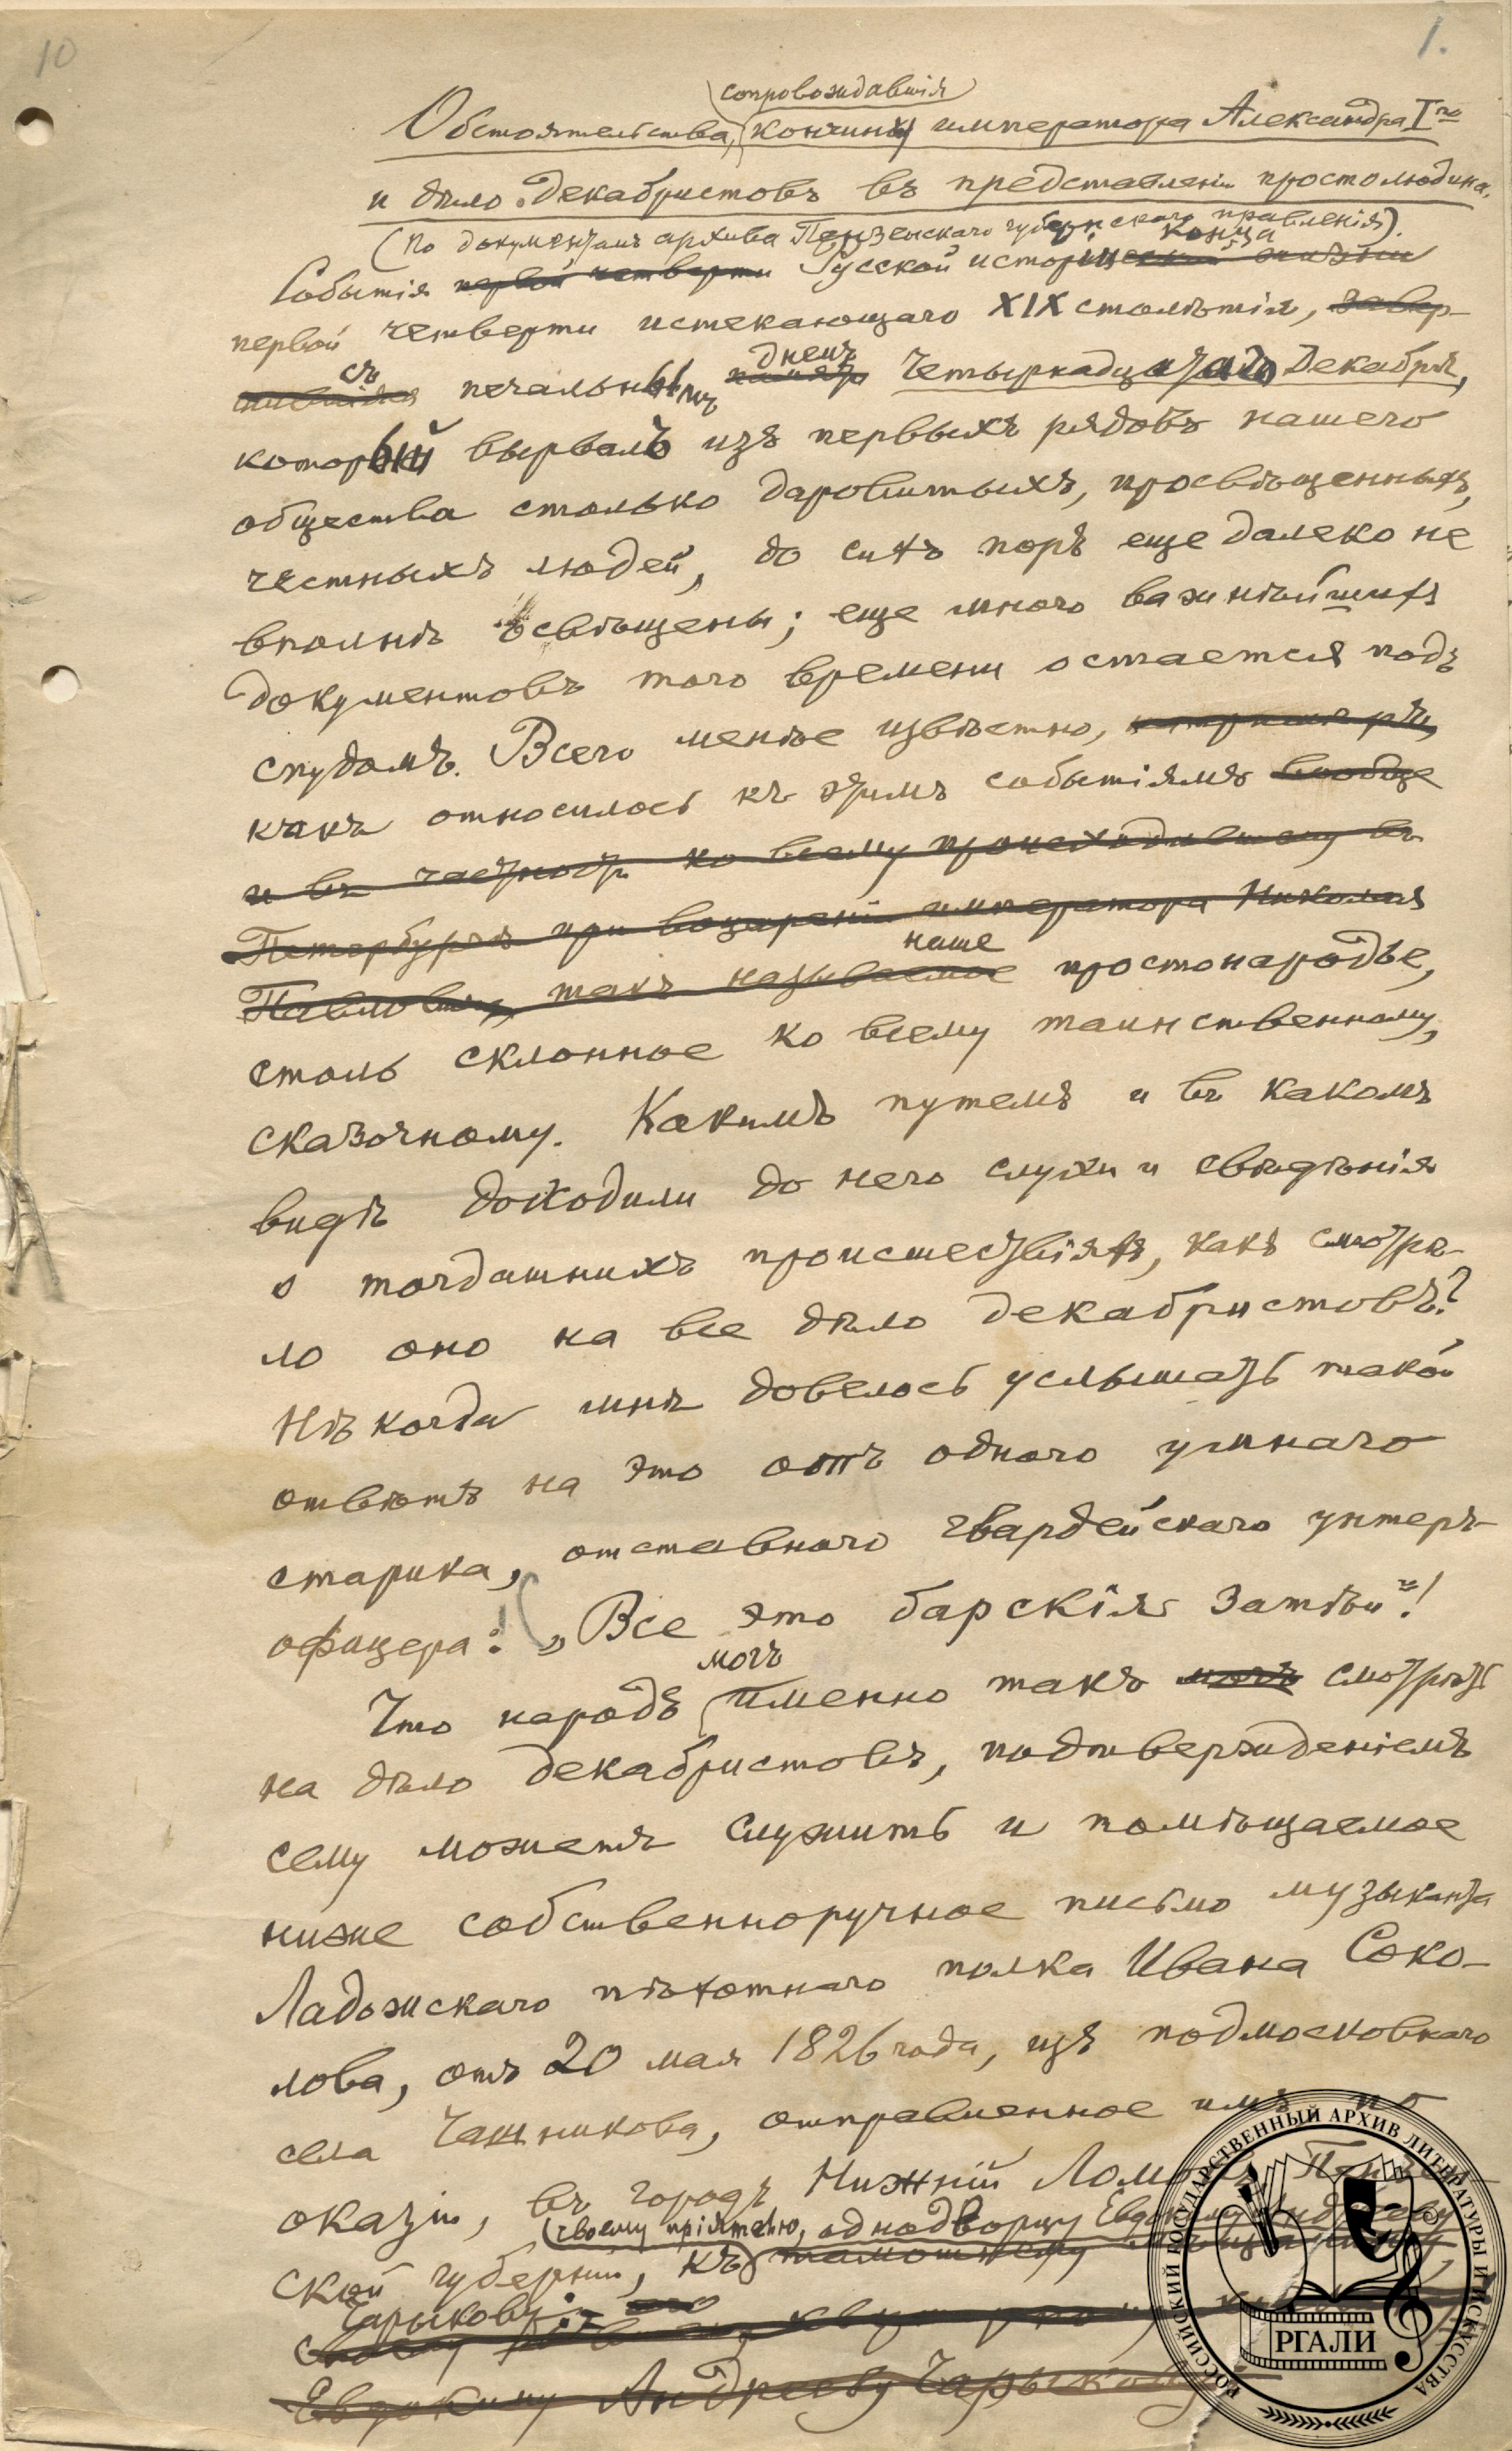 10
1.
сопровождавшія
Обстоятельства, кончины императора Александра I го
и дѣло Декабристовъ въ представленіи простолюдина.
(По документамъ архива Пензенскаго губернскаго правленія).
конца
Событія первой четверти Русской исторической жизни
первой четверти истекающаго XIX столѣтія, завер-
съ днемъ
шившіяся печальнымъ Четырнадцатаго Декабря,
который вырвалъ изъ первыхъ рядовъ нашего
общества столько даровитыхъ, просвѣщенныхъ,
честныхъ людей, до сихъ поръ еще далеко не
вполнѣ освѣщены; еще много важнѣйшихъ
документовъ того времени остается подъ
спудомъ. Всего менѣе извѣстно,
какъ относилось къ этимъ событіямъ вообще
и въ частности ко всему происходившему въ
Петербургѣ при воцареніи императора Николая
наше
Павловича, такъ называемое простонародье,
столь склонное ко всему таинственному,
сказочному. Какимъ путемъ и въ какомъ
видѣ доходили до него слухи и свѣдѣнія
о тогдашнихъ происшествіяхъ, какъ смотрѣ-
ло оно на все дѣло декабристовъ?
Нѣкогда мнѣ довелось услышать такой
отвѣтъ на это отъ одного умнаго
старика, отставного гвардейскаго унтеръ-
офицера: „Все это барскія затѣи"!
могъ
Что народъ именно такъ могъ смотрѣть
на дѣло декабристовъ, подтвержденіемъ
сему можетъ служить и помѣщаемое
ниже собственноручное письмо музыканта
Ладожскаго пѣхотнаго полка Ивана Соко-
лова, отъ 20 мая 1826 года, изъ подмосковнаго
села Чашникова, отправленное имъ по
оказіи, въ городъ Нижній Ломовъ Пензен-
своему пріятелю, однодворцу Евдокиму Андрееву
ской губерніи, къ тамошнему
Чарыкову:
своему
Евдокиму Андрееву Чарыкову
РОССИЙСКИЙ ГОСУДАРСТВЕННЫЙ АРХИВ ЛИТЕРАТУРЫ И ИСКУССТВА
РГАЛИ